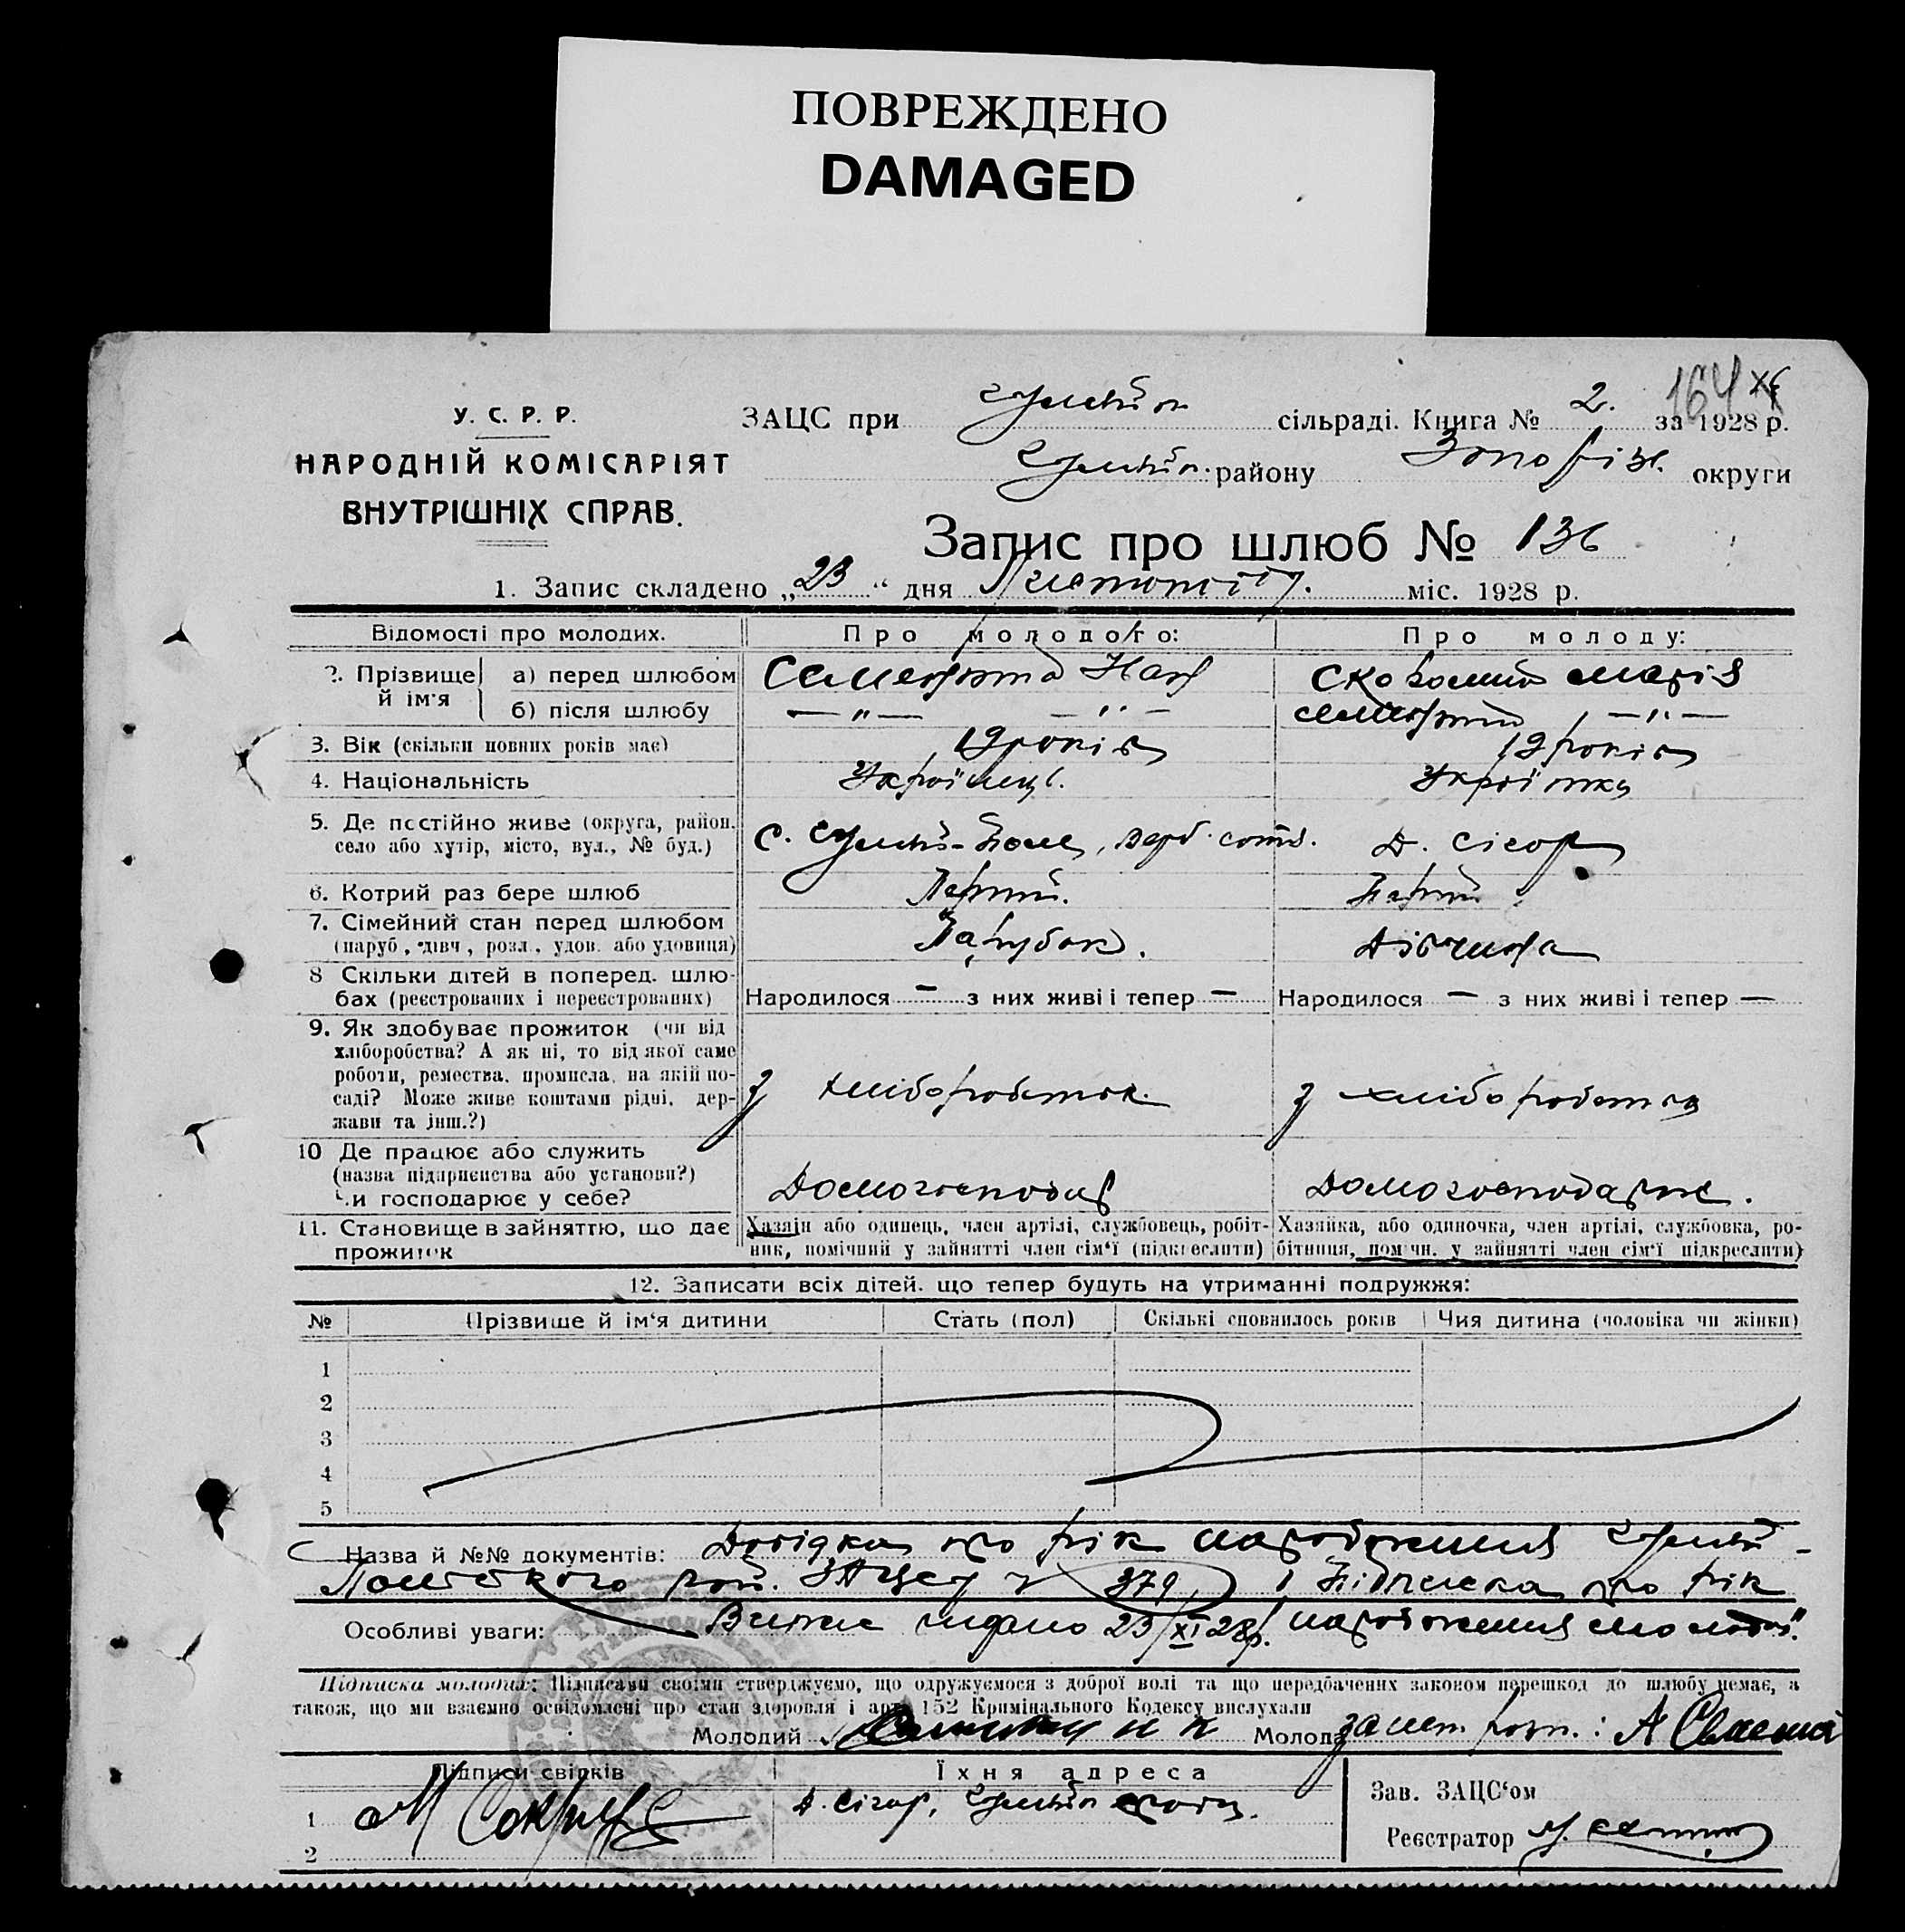 ПОВРЕЖДЕНО
DAMAGED
164
У. С. Р. Р.
НАРОДНІЙ КОМІСАРІЯТ
ВНУТРІШНІХ СПРАВ.
ЗАЦС при сільраді. Книга № 2. за 1928 р.
району округи
Запис про шлюб № 136
1. Запис складено „23“ дня Листопаду. міс. 1928 р.
Відомості про молодих. Про молодого: Про молоду:
2. Прізвище й ім'я а) перед шлюбом Марія
б) після шлюбу — " — — " — — " —
3. Вік (скільки повних років має) 19 років 19 років
4. Національність Українець. Українка
5. Де постійно живе (округа, район, село або хутір, місто, вул., № буд.) С. Д. Сігор
6. Котрий раз бере шлюб Перший. Перший
7. Сімейний стан перед шлюбом (паруб., дівч., розл., удов. або удовиця) Парубок. Дівчина
8 Скільки дітей в поперед. шлюбах (реєстрованих і нереєстрованих) Народилося — з них живі і тепер — Народилося — з них живі і тепер —
9. Як здобуває прожиток (чи від хліборобства? А як ні, то від якої саме роботи, ремества, промисла, на якій посаді? Може живе коштами рідні, держави та інш.?) З хліборобства З хліборобства
10 Де працює або служить (назва підприємства або установи?) Чи господарює у себе? Домогосподар Домогосподарка.
11. Становище в зайняттю, що дає прожиток Хазяїн або одинець, член артілі, службовець, робітник, помічний у зайнятті член сім'ї (підкреслити) Хазяйка, або одиночка, член артілі, службовка, робітниця, помічн. у зайнятті член сім'ї підкреслити)
12. Записати всіх дітей, що тепер будуть на утриманні подружжя:
№ Прізвище й ім'я дитини Стать (пол) Скількі сповнилось років Чия дитина (чоловіка чи жінки)
1
2
3
4
5
Назва й №№ документів: Довідка про рік народження
рай. ЗАЦСу № 379 і Підписка про рік
Особливі уваги: Витяг видано 23/XI 28р. народження молодої.
Підписка молодих: Підписами своїми стверджуємо, що одружуємося з доброї волі та що передбачених законом перешкод до шлюбу немає, а
також, що ми взаємно освідомлені про стан здоровля і арт. 152 Кримінального Кодексу вислухали
Молодий Молода
Підписи свідків Їхня адреса
1 Д. Сігор,
2
Зав. ЗАЦС'ом
Реєстратор